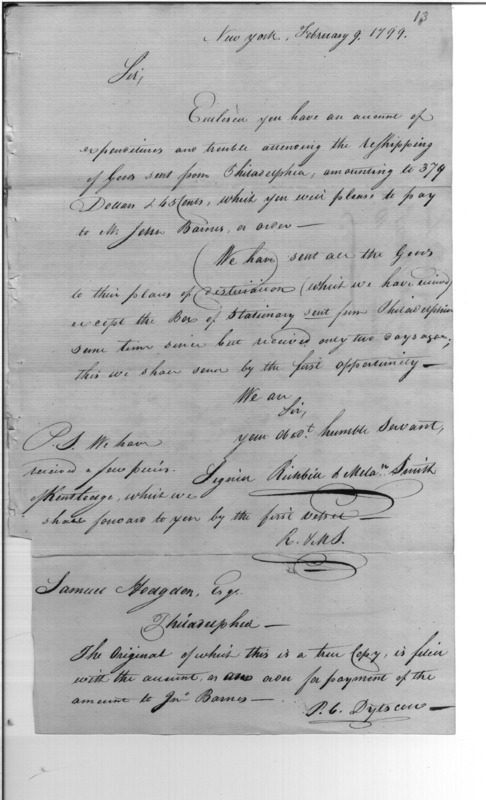 13
New York, February 9. 1799.
Sir,
Enclosed you have an account of
expenditures and trouble attending the reshipping
of Goods sent from Philadelphia, amounting to 379
Dollars & 45 Cents, which you will please to pay
to Mr. John Barnes, or order —
We have sent all the Goods
to their places of destination (which we have received)
except the Box of Stationary sent from Philadelphia
some time since but received only two days ago;
this we shall send by the first opportunity —
We are
Sir,
your obedt. humble Servant,
Signed Richbill & Melan. Smith
P.S. We have
received a few pieces
of Kentledge, which we
shall forward to you by the first vessel —
R. & M S.
Samuel Hodgdon, Esqr.
Philadelphia —
The Original of which this is a true Copy, is filed
with the account, as an order for payment of the
amount to Jno. Barnes —
P. C.